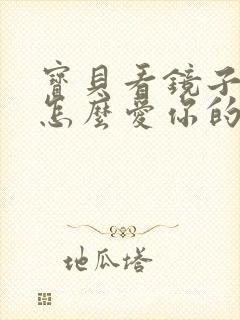 寶貝看鏡子
怎麼愛你的
地瓜塔